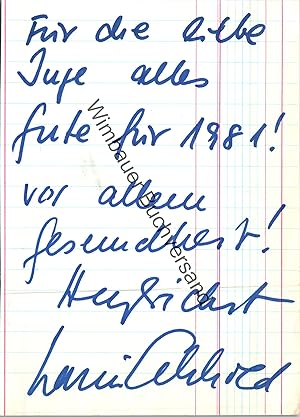 Für die liebe
Inge alles
gute für 1981!
vor allem
gesundheit!
Herzlichst
Wimbauer Buchversand